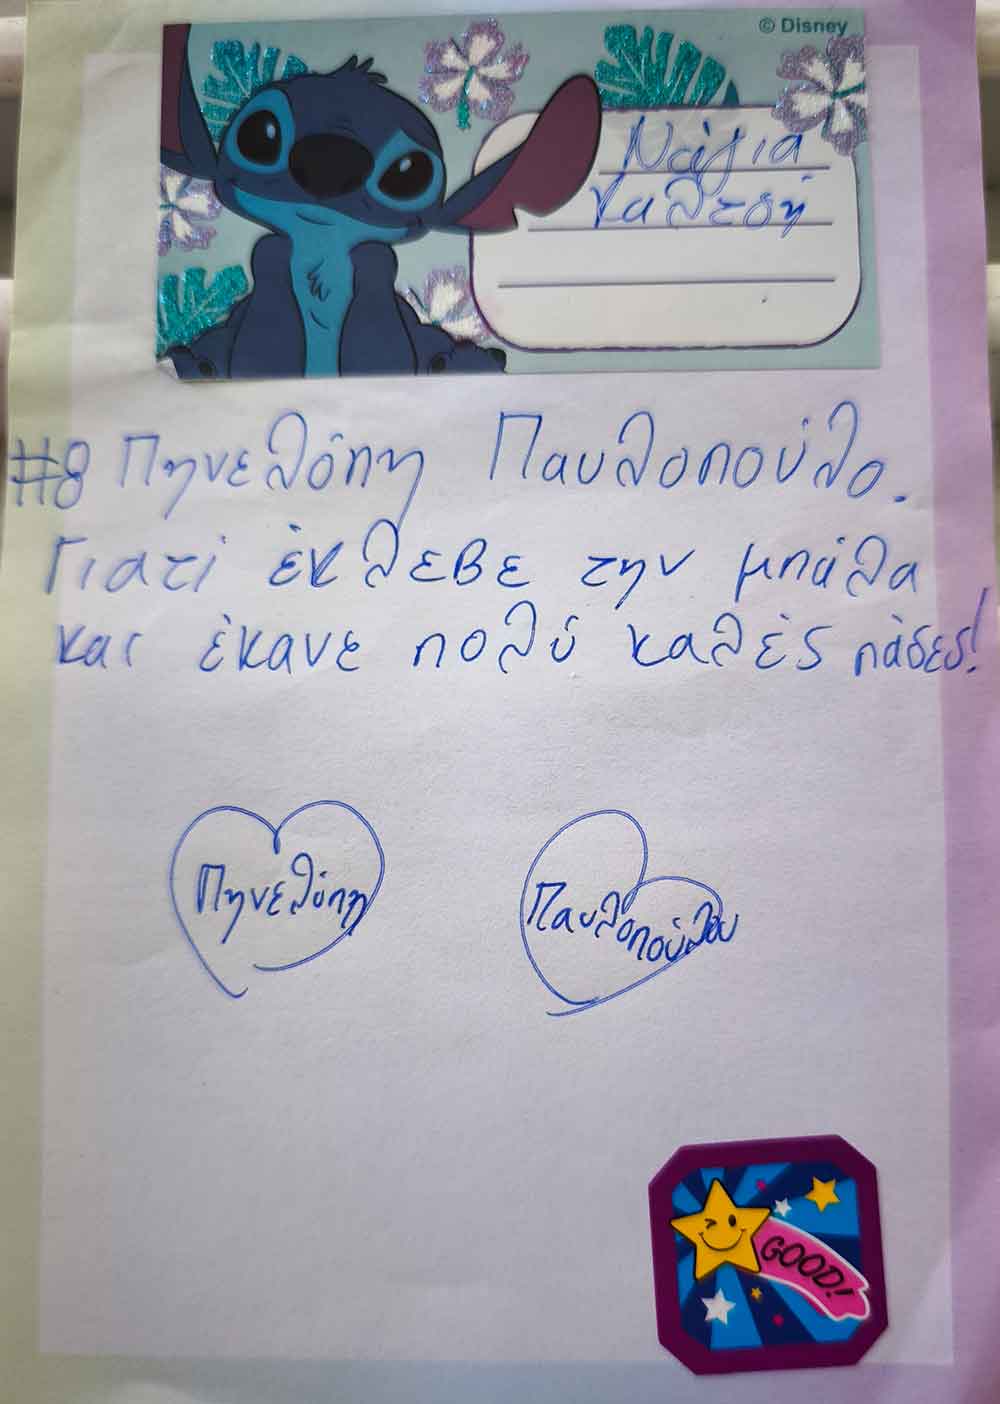 © Disney
Νάγια
Καλεσή
#8 Πηνελόπη Παυλοπούλο.
Γιατί έκλεβε την μπάλα
και έκανε πολύ καλές πάσες!
Πηνελόπη
Παυλοπούλου
GOOD!